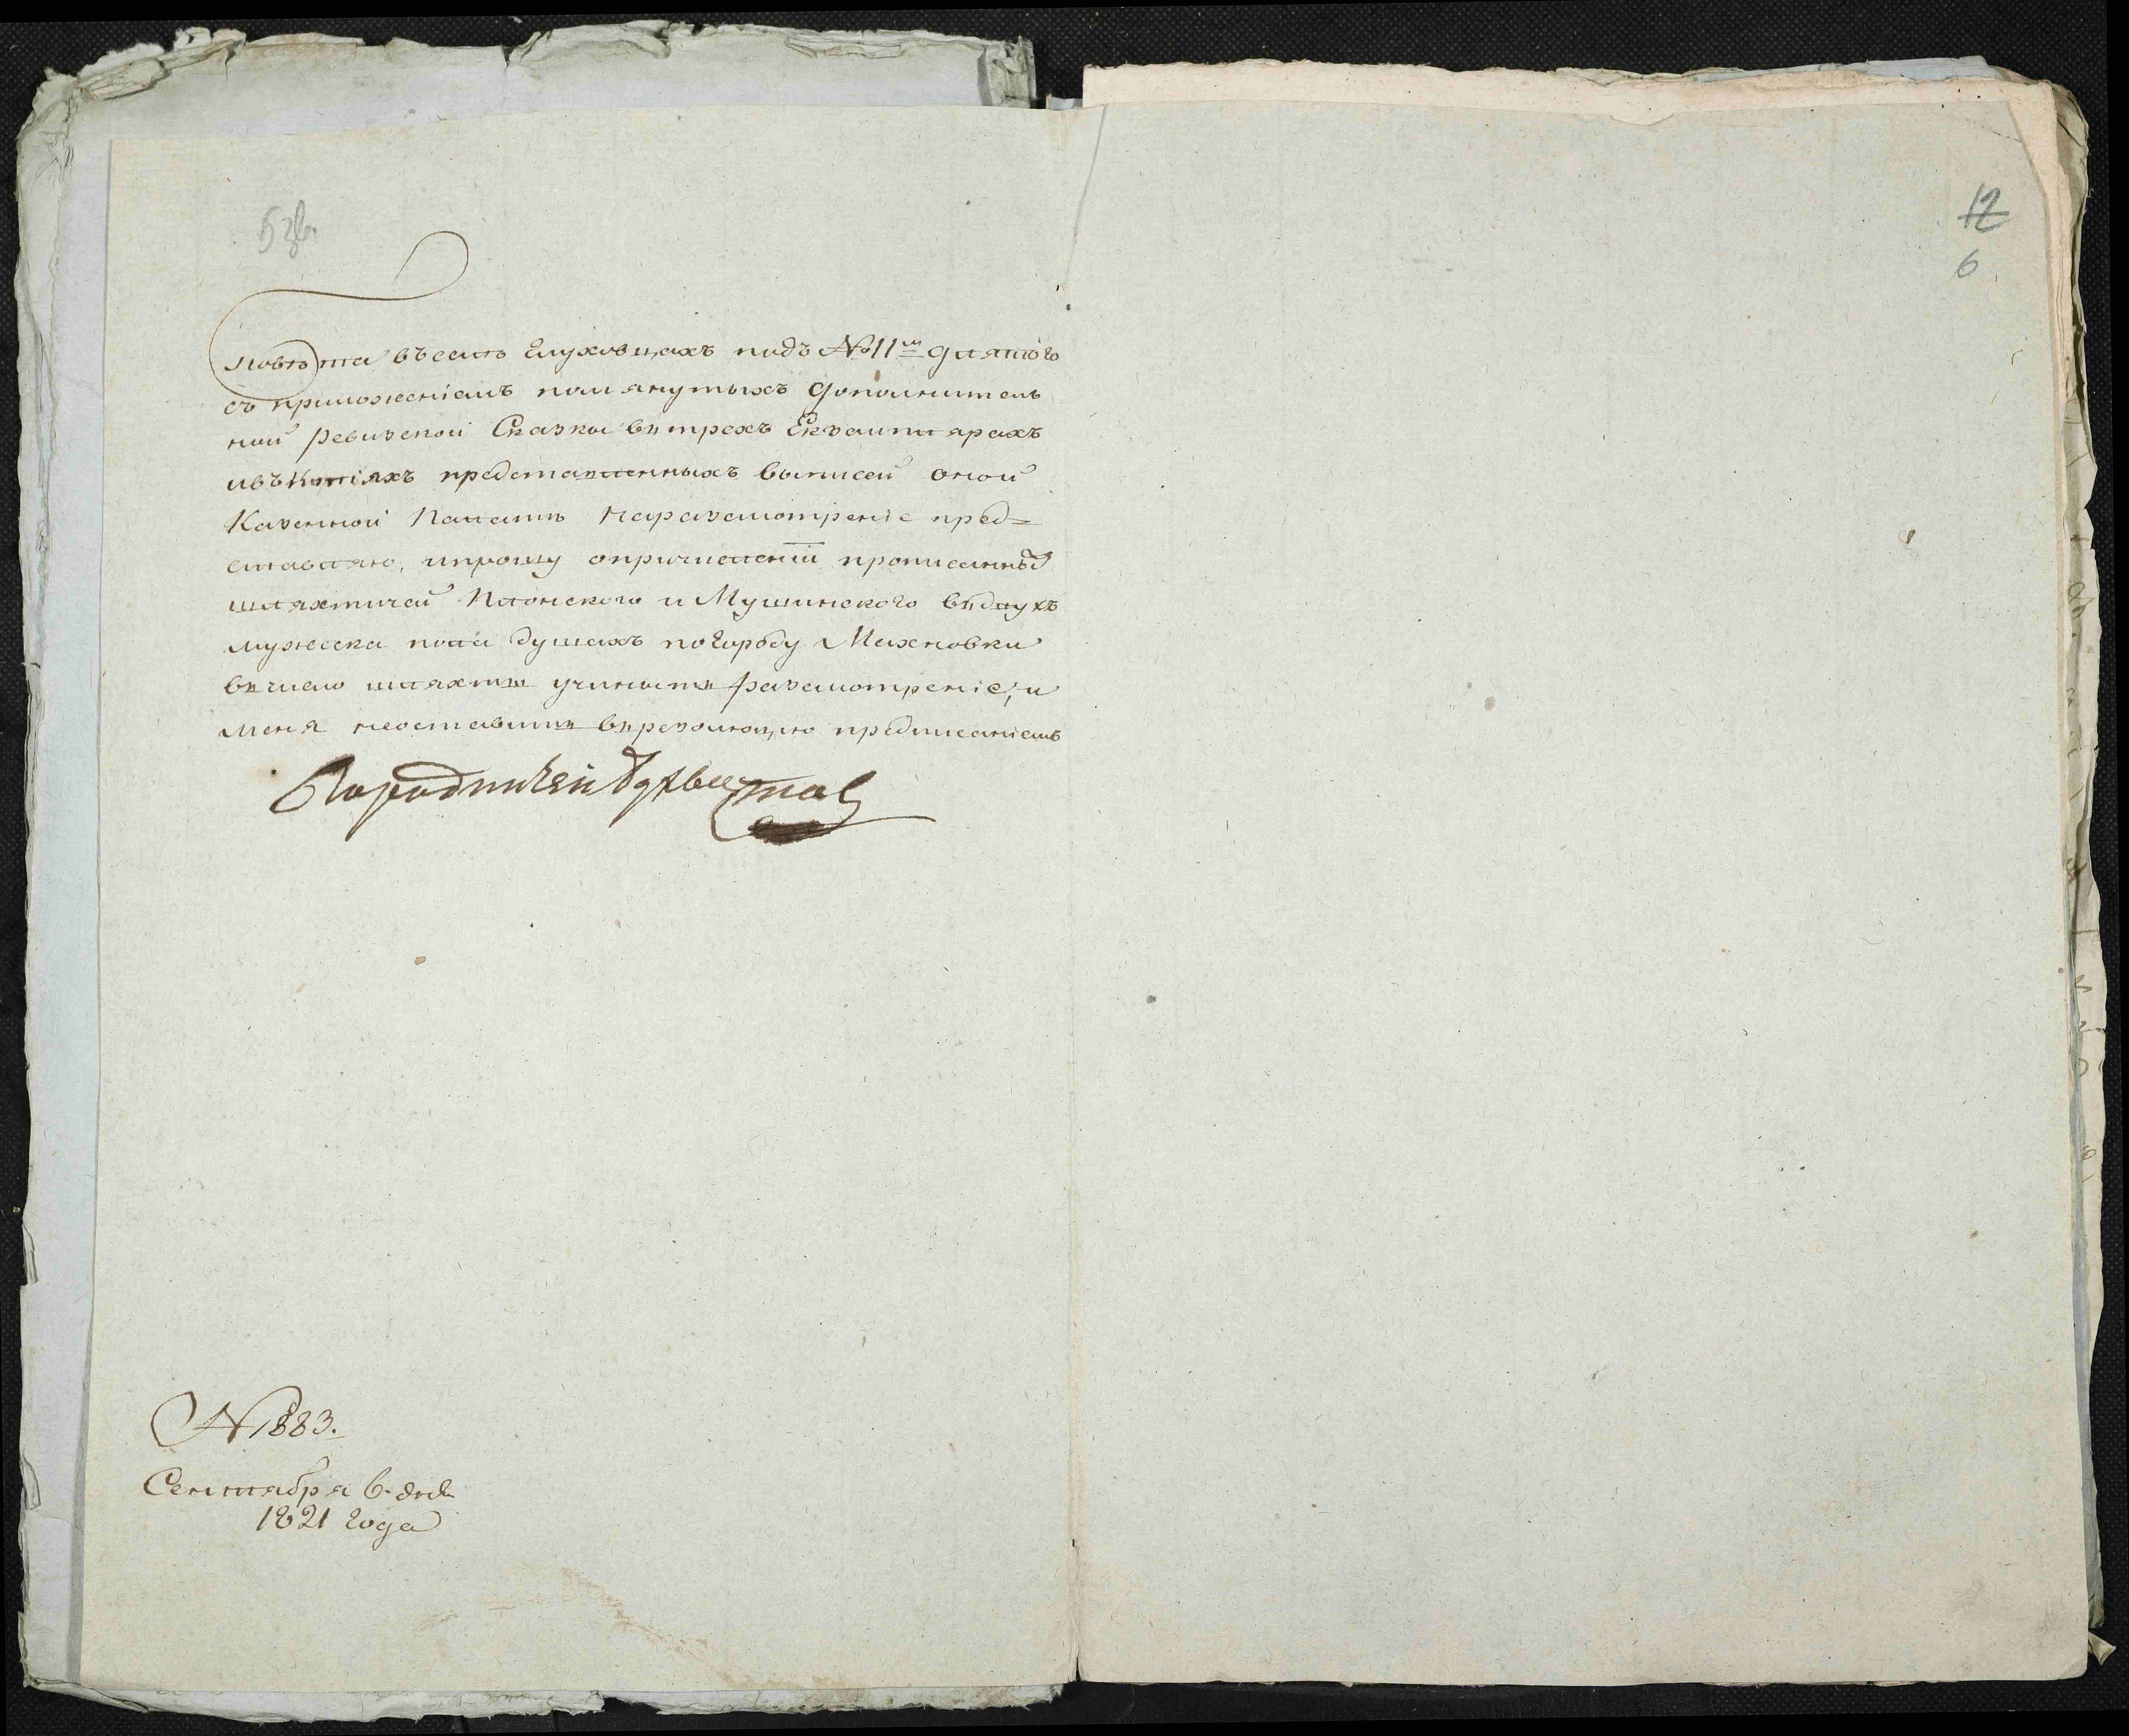 5 зв.
12
6
повѣта въ селѣ Глуховцахъ подъ № 11м для того
съ приложеніемъ помянутыхъ дополнитель
ной ревизской Сказки въ трехъ Екземплярахъ
и въ копіяхъ представленныхъ выписей оной
Казенной Палатѣ на разсмотреніе пред=
ставляю, и прошу о причисленіи прописанныхъ
шляхтичей Плонского и Мушинского въ двухъ
мужеска пола душахъ по городу Махновки
въ число шляхты учинить разсмотреніе, и
меня неоставить въ резолюцию предписаніемъ
Городничей
N 1883.
Сентября 6 дня
1821 года